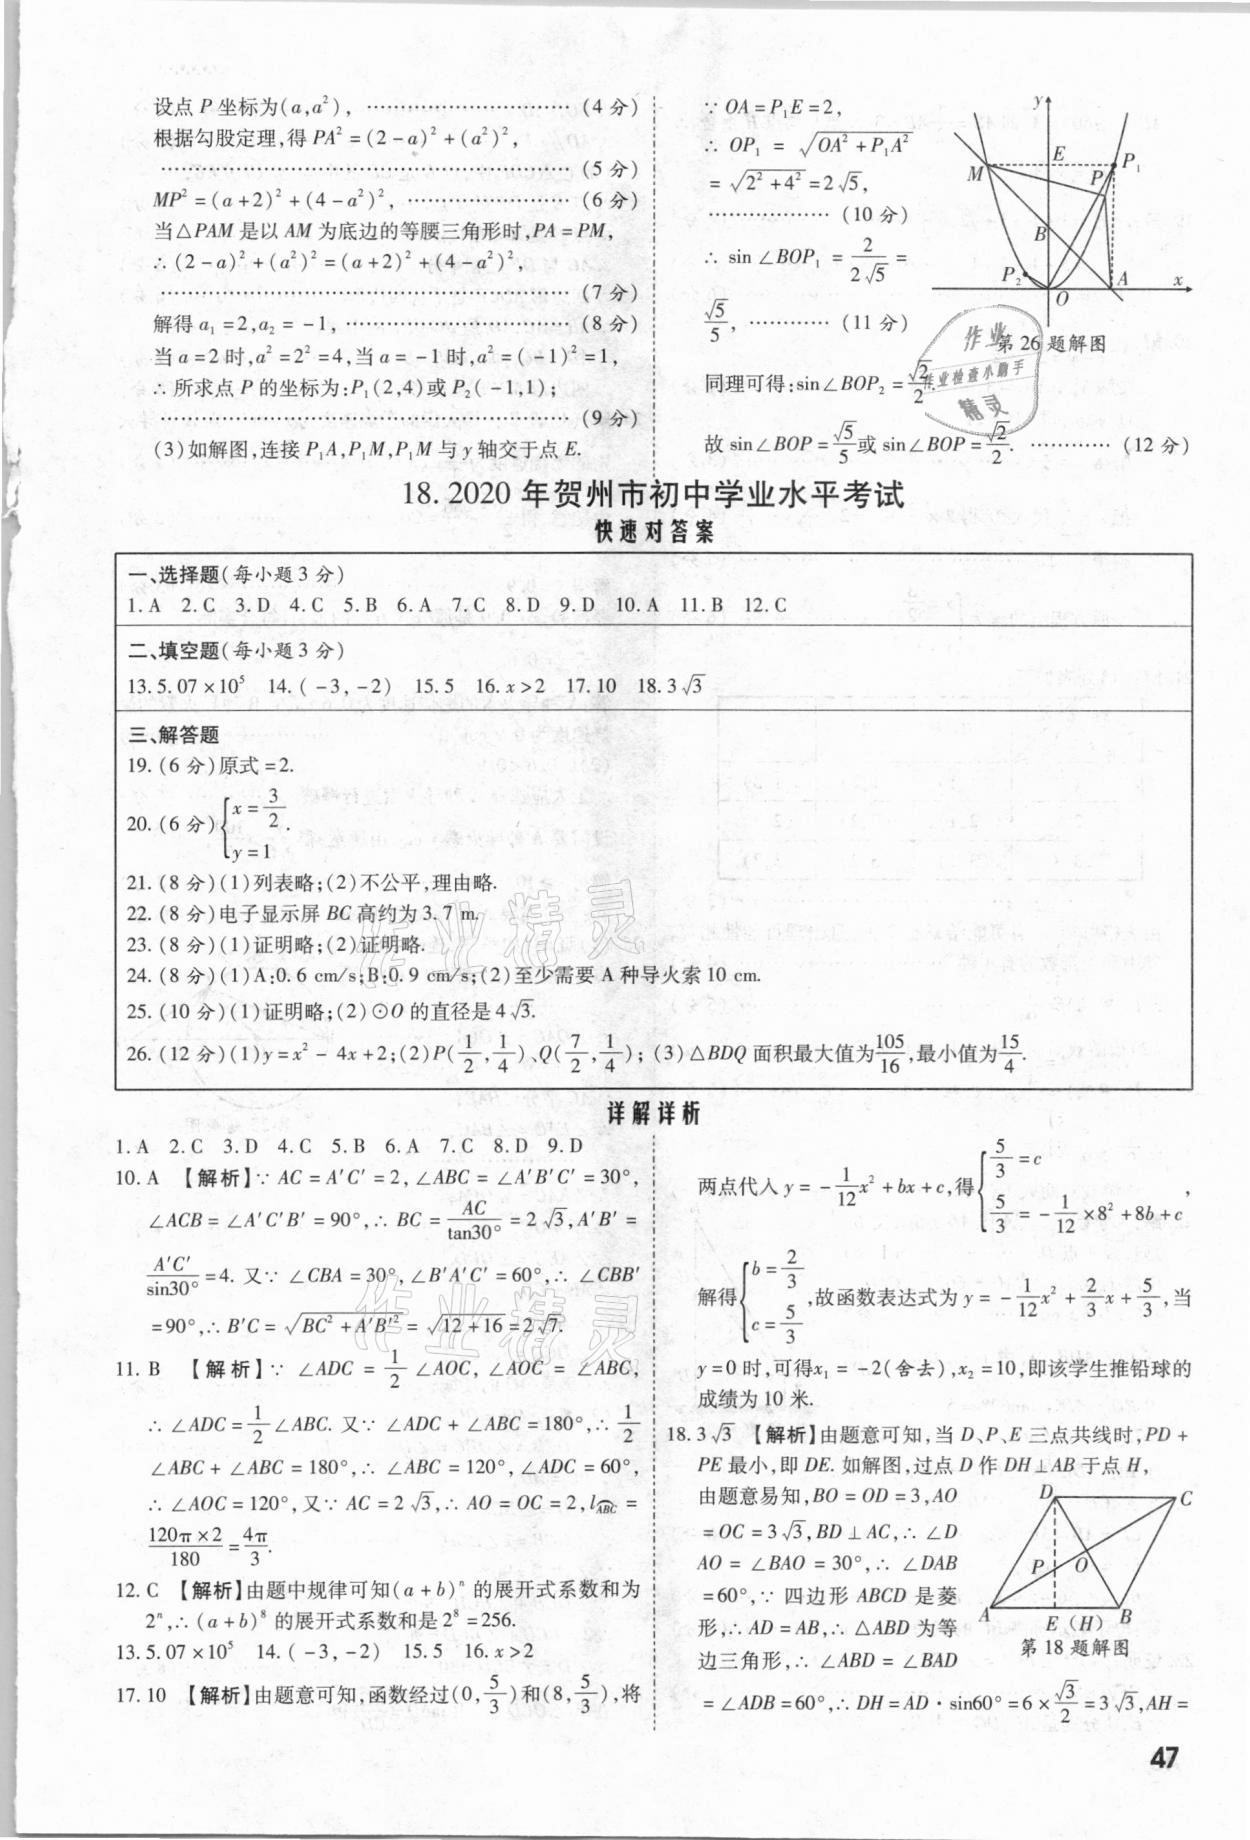 设点 P 坐标为(a,a²), ………………………… (4 分)
根据勾股定理,得 PA²=(2-a)²+(a²)²,
………………………………………………… (5 分)
MP²=(a+2)²+(4-a²)², ………………… (6 分)
当△PAM 是以 AM 为底边的等腰三角形时,PA=PM,
∴(2-a)²+(a²)²=(a+2)²+(4-a²)²,
………………………………………………… (7 分)
解得 a₁=2,a₂=-1, ………………………… (8 分)
当 a=2 时,a²=2²=4,当 a=-1 时,a²=(-1)²=1,
∴所求点 P 的坐标为:P₁(2,4)或 P₂(-1,1);
………………………………………………… (9 分)
(3)如解图,连接 P₁A,P₁M,P₁M 与 y 轴交于点 E.
∵OA=P₁E=2,
∴ OP₁ = √(OA²+P₁A²)
=√(2²+4²)=2√5,
……………… (10 分)
∴ sin∠BOP₁ = 2/(2√5) =
√5/5, ………… (11 分)
同理可得:sin∠BOP₂=√2/2.
故 sin∠BOP=√5/5或 sin∠BOP=√2/2. ………… (12 分)
y
M
E
P
P₁
B
P₂
O
A
x
第 26 题解图
作业
作业检查小助手
精灵
18. 2020 年贺州市初中学业水平考试
快速对答案
一、选择题(每小题 3 分)
1. A 2. C 3. D 4. C 5. B 6. A 7. C 8. D 9. D 10. A 11. B 12. C
二、填空题(每小题 3 分)
13. 5.07×10⁵ 14. (-3,-2) 15. 5 16. x>2 17. 10 18. 3√3
三、解答题
19. (6 分)原式=2.
20. (6 分){x=3/2
y=1.
21. (8 分)(1)列表略;(2)不公平,理由略.
22. (8 分)电子显示屏 BC 高约为 3.7 m.
23. (8 分)(1)证明略;(2)证明略.
24. (8 分)(1)A:0.6 cm/s;B:0.9 cm/s;(2)至少需要 A 种导火索 10 cm.
25. (10 分)(1)证明略;(2)⊙O 的直径是 4√3.
26. (12 分)(1)y=x²-4x+2;(2)P(1/2,1/4)、Q(7/2,1/4);(3)△BDQ 面积最大值为105/16,最小值为15/4.
作业精灵
详解详析
1. A 2. C 3. D 4. C 5. B 6. A 7. C 8. D 9. D
10. A 【解析】∵ AC=A′C′=2,∠ABC=∠A′B′C′=30°,
∠ACB=∠A′C′B′=90°,∴ BC=AC/tan30°=2√3,A′B′=
A′C′/sin30°=4. 又∵ ∠CBA=30°,∠B′A′C′=60°,∴ ∠CBB′
=90°,∴ B′C=√(BC²+A′B′²)=√(12+16)=2√7.
11. B 【解析】∵ ∠ADC=1/2∠AOC,∠AOC=∠ABC,
∴ ∠ADC=1/2∠ABC. 又∵ ∠ADC+∠ABC=180°,∴1/2
∠ABC+∠ABC=180°,∴ ∠ABC=120°,∠ADC=60°,
∴ ∠AOC=120°,又∵ AC=2√3,∴ AO=OC=2,l⌒ABC=
120π×2/180=4π/3.
12. C 【解析】由题中规律可知(a+b)ⁿ 的展开式系数和为
2ⁿ,∴(a+b)⁸ 的展开式系数和是 2⁸=256.
13. 5.07×10⁵ 14. (-3,-2) 15. 5 16. x>2
17. 10 【解析】由题意可知,函数经过(0,5/3)和(8,5/3),将
作业精灵
两点代入 y=-1/12x²+bx+c,得{5/3=c
5/3=-1/12×8²+8b+c,
解得{b=2/3
c=5/3,故函数表达式为 y=-1/12x²+2/3x+5/3,当
y=0 时,可得x₁=-2(舍去),x₂=10,即该学生推铅球的
成绩为 10 米.
18. 3√3 【解析】由题意可知,当 D、P、E 三点共线时,PD+
PE 最小,即 DE. 如解图,过点 D 作 DH⊥AB 于点 H,
由题意易知,BO=OD=3,AO
=OC=3√3,BD⊥AC,∴ ∠D
AO=∠BAO=30°,∴ ∠DAB
=60°,∵ 四边形 ABCD 是菱
形,∴ AD=AB,∴ △ABD 为等
边三角形,∴ ∠ABD=∠BAD
=∠ADB=60°,∴ DH=AD·sin60°=6×√3/2=3√3,AH=
D
C
P
O
A
E (H)
B
第 18 题解图
47